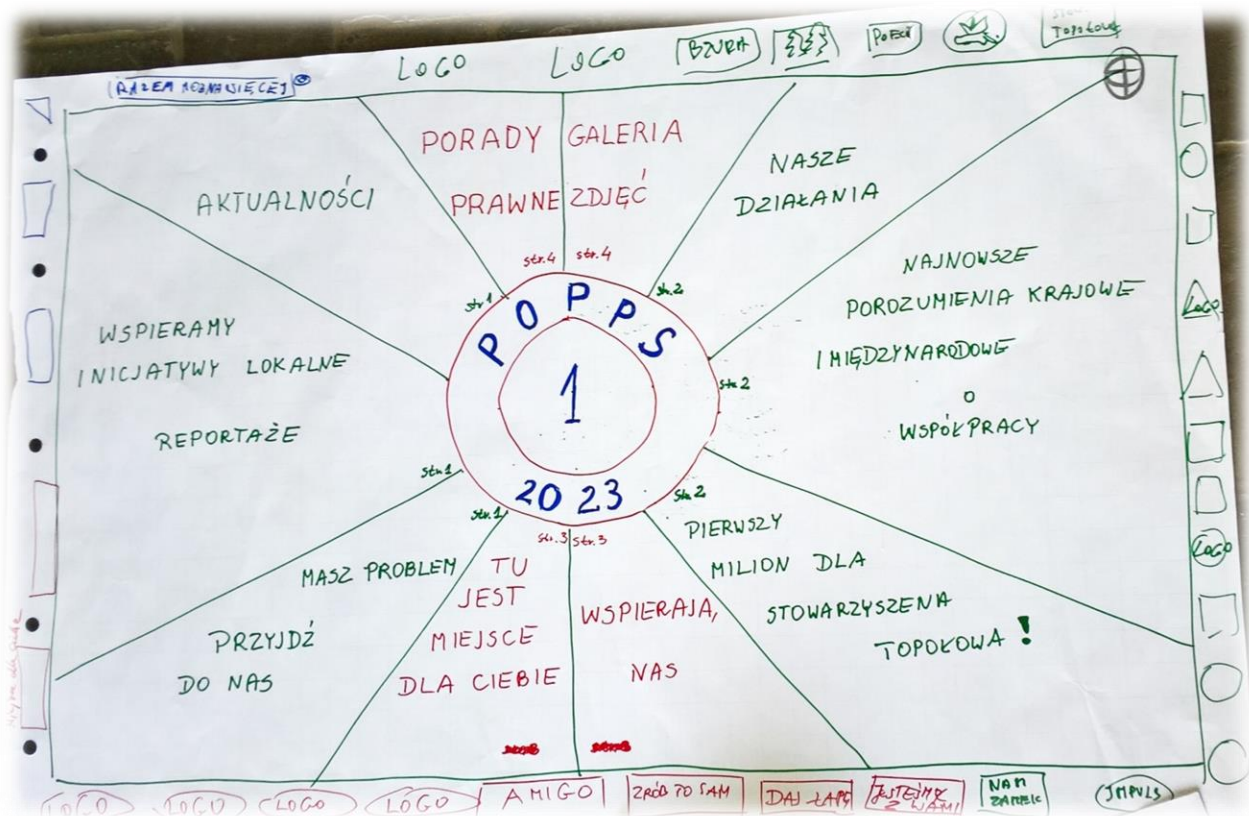 RAZEM MOŻNA WIĘCEJ
LOGO
LOGO
BZURA
AKTUALNOŚCI
PORADY
PRAWNE
GALERIA
ZDJĘĆ
NASZE
DZIAŁANIA
NAJNOWSZE
POROZUMIENIA KRAJOWE
I MIĘDZYNARODOWE
O
WSPÓŁPRACY
WSPIERAMY
INICJATYWY LOKALNE
REPORTAŻE
str.4
str.4
str.1
str.2
str.2
str.1
str.1
str.2
str.3
str.3
POPPS
1
2023
MASZ PROBLEM
PRZYJDŹ
DO NAS
TU
JEST
MIEJSCE
DLA CIEBIE
WSPIERAJĄ
NAS
PIERWSZY
MILION DLA
STOWARZYSZENA
TOPOŁOWA!
LOGO
LOGO
LOGO
LOGO
LOGO
LOGO
AMIGO
ZRÓB TO SAM
DAJ ŁAPĘ
JESTEŚMY
Z WAMI
NAM
IMPULS